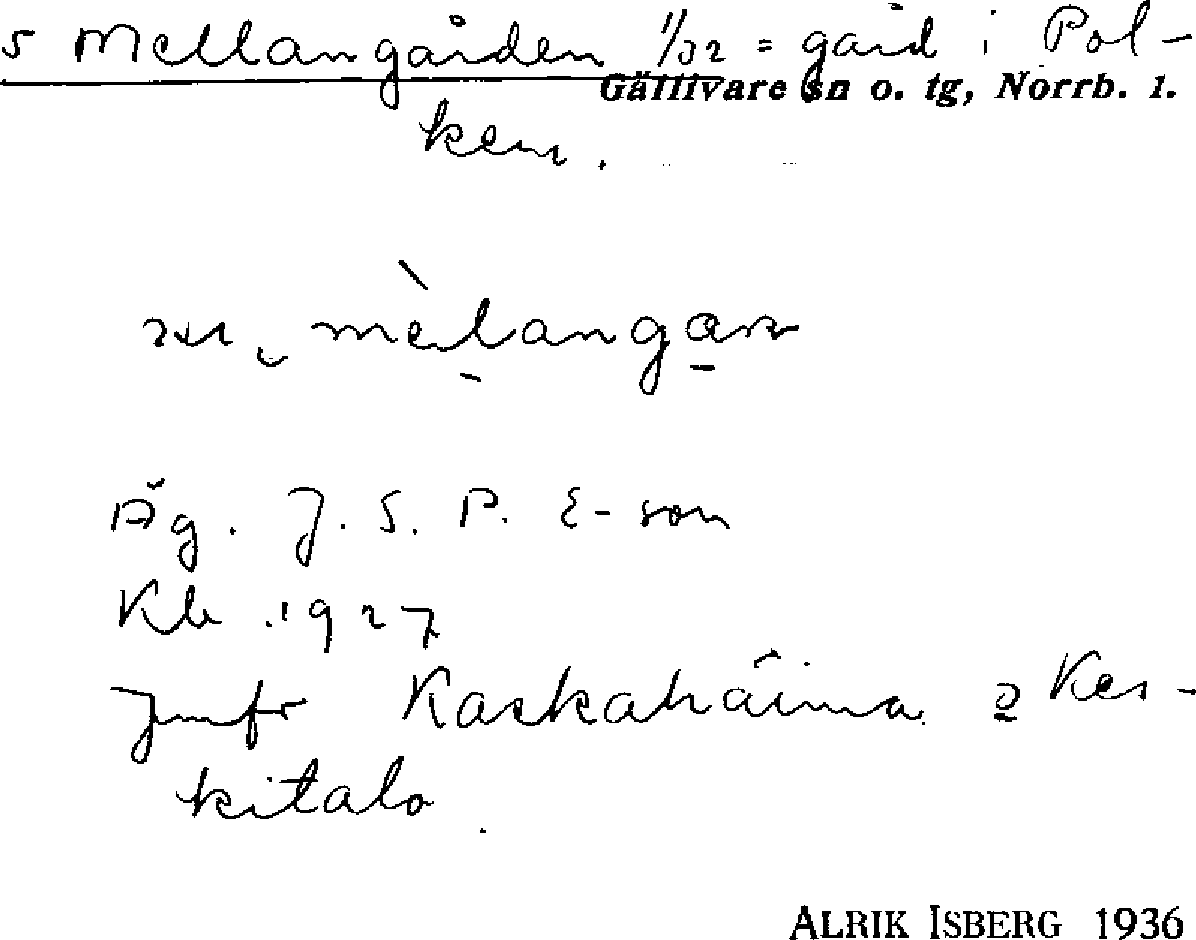 5 Mellangården 1/32 = gård i Pol-
Gällivare sn o. tg, Norrb. l.
ken.
mèlangan
Äg. J. S. P. E-son
Kb 1927
Jmfr Kaskahâima o Kes-
kitalo.
ALRIK ISBERG 1936